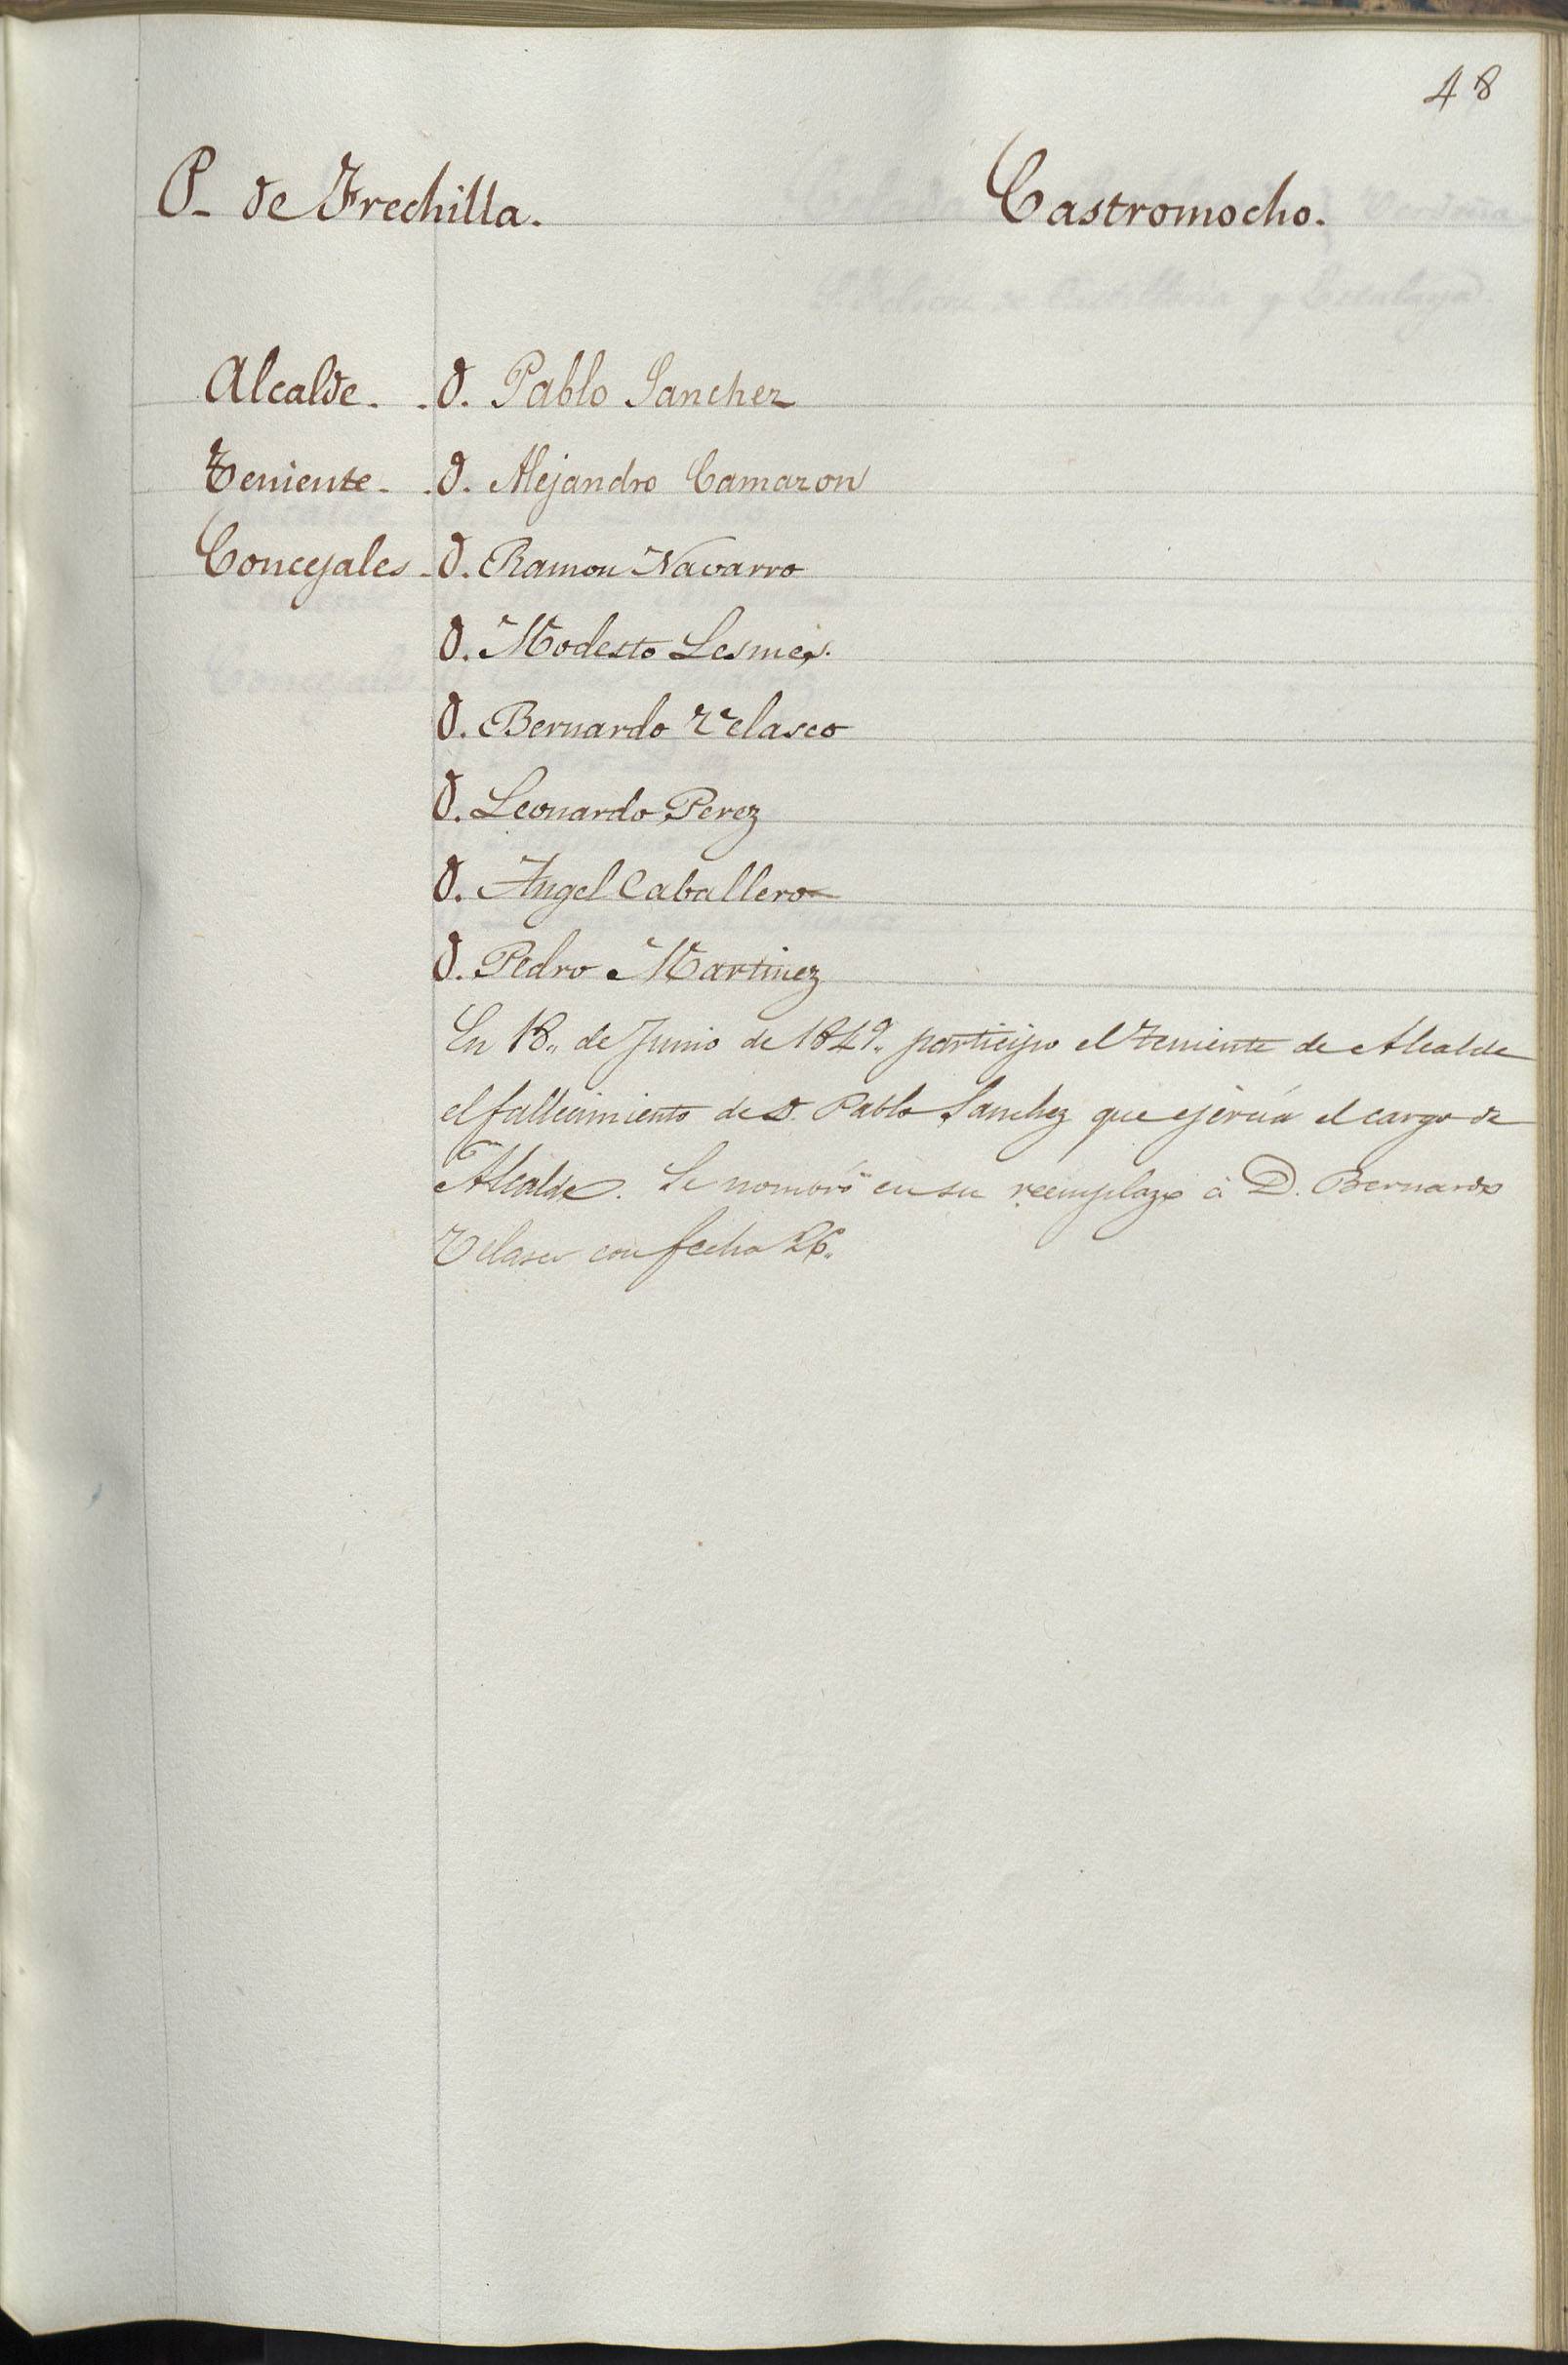 48
P. de Frechilla. Castromocho.
Alcalde. . D. Pablo Sanchez
Teniente. . D. Alejandro Camazon
Concejales . D. Ramon Navarro
D. Modesto Lesmes.
D. Bernardo Velasco
D. Leonardo Perez
D. Angel Caballero
D. Pedro Martinez
En 18,, de Junio de 1849,, participo el teniente de Alcalde
el fallecimiento de D. Pablo Sanchez que ejercia el cargo de
Alcalde. Se nombró en su reemplazo á D. Bernardo
Velasco con fecha 26.